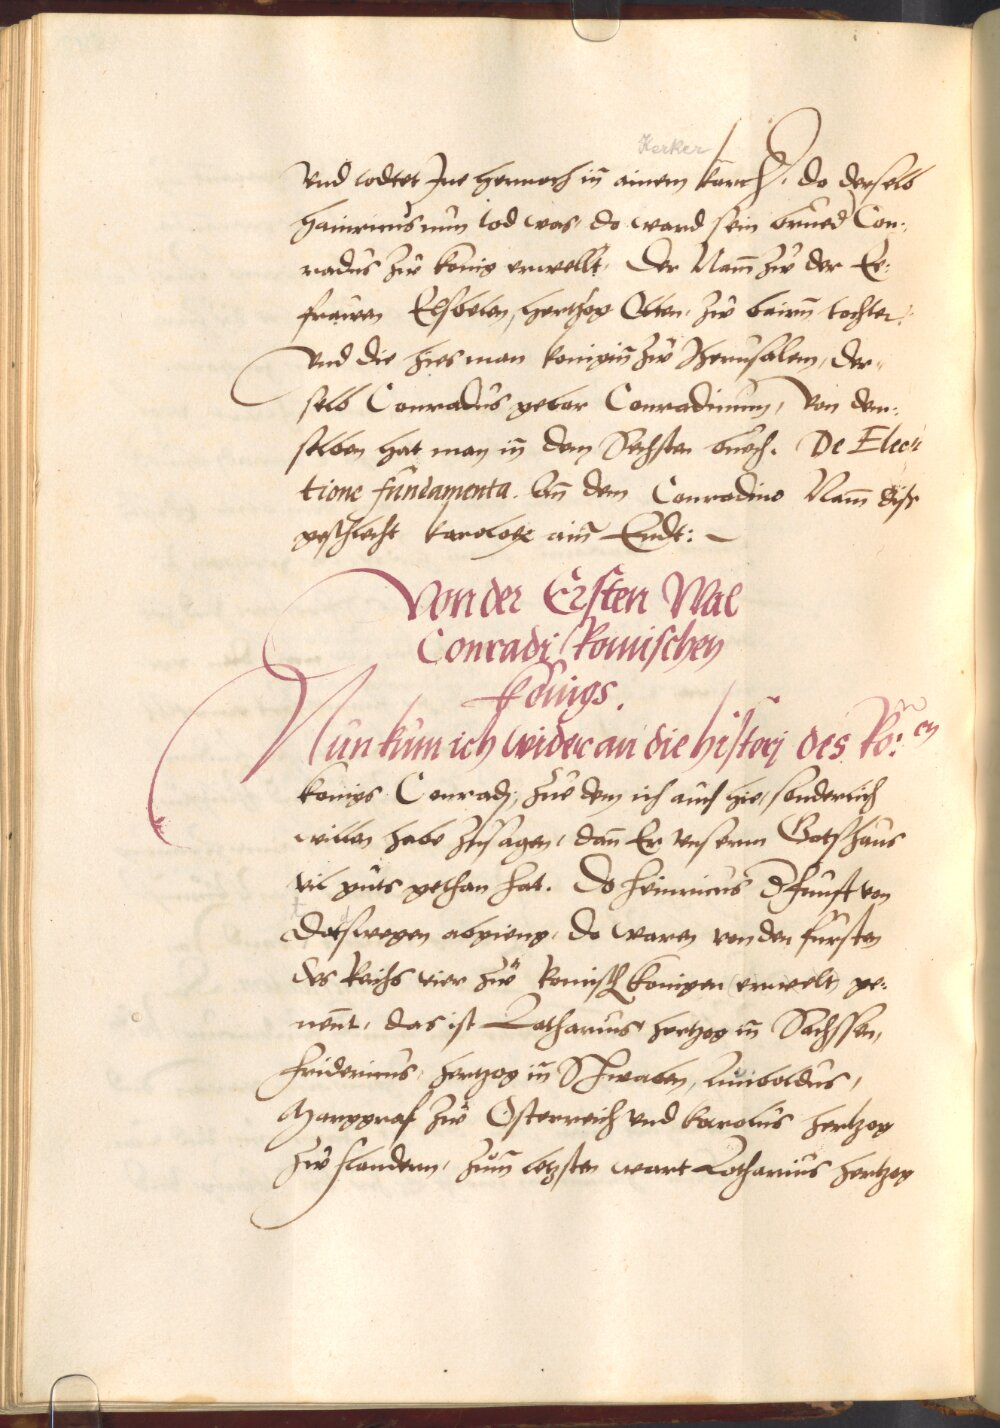 Kerker
vnd todtet Jne hernach in̄ ainem karch. do derselb
Hainricus nun tod was, do ward sein brued Con:
radus zu̇ konig erwellt, Der Nam̄ zu̇ der Ee:
frawen Elsbeten, hertzog Otten, zu̇ bairn̄ tochter:
Vnd die hies man konigin̄ zu̇ Jherusalem, der:
selb Conradus gebar Conradinum, Von dem:
selben hat man in̄ dem Sechsten buoch. De Elec:
tione fundamenta. An̄ dem Conradino Nam̄ diß
geschlecht karolotze ain̄ Endt:
Von der Ersten Wal
Conradi Romischen
Königs.
Nun kum ich wider an die histori des Rö: en
königs Conradj, zu̇e dem ich auch hie, sonderlich
willen habe zusagen, dan̄ Er vnserm Gotshaus
vil guts gethan hat. Do heinricus d funfft von
Dotswegen abgieng, do waren von den fursten
des Reichs vier zu̇ Romisch konigen (erwelt) ge:
nen̄t, das ist Lotharius hertzog in̄ Sachssen,
Fridericus, hertzog in̄ Schwaben, Luiboldus,
Marggraf zu̇ Osterreich vnd karolus hertzog
zu̇ flandern, zum̄ letzsten wart Lotharius hertzog